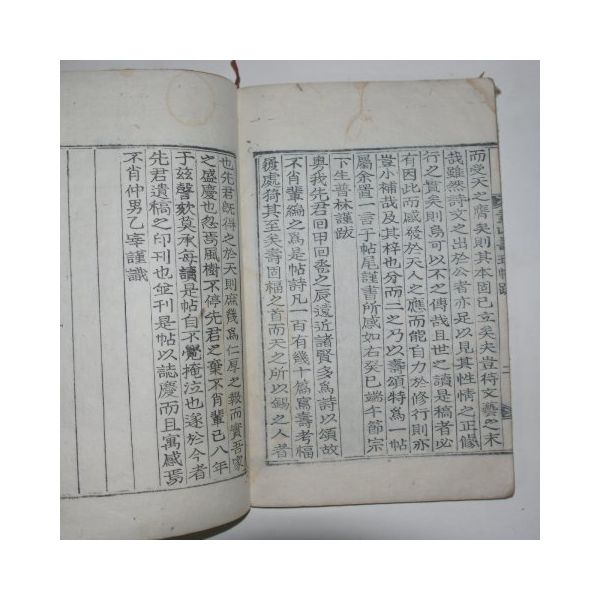 而受天之膺矣則其本固已立矣夫豈待文藝之末
哉雖然詩文之出於公者亦足以見其性情之正絛
行之實矣則烏可以不之傳哉且世之讀是稿者必
有因此而感發於天人之應而能自力於修行則亦
豈小補哉及其梓也分而二之乃以壽頌特爲一帖
屬余置一言于帖尾謹書所感如右癸巳端午節宗
下生普林謹跋
奧我先君回甲回巹之辰遠近諸賢多爲詩以頌故
不肖輩編之爲是帖詩凡一百有幾十篇寫壽考福
履處猗其至矣壽固福之首而天之所以錫之人者
也先君旣得之於天則庶幾爲仁厚之報而實吾家
之盛慶也忽焉風樹不停先君之棄不肖輩已八年
于玆謦欬莫承每讀是帖自不覺掩泣也遂於今者
先君遺稿之印刊也並刊是帖以誌慶而且寓感焉
不肖仲男乙宰謹識